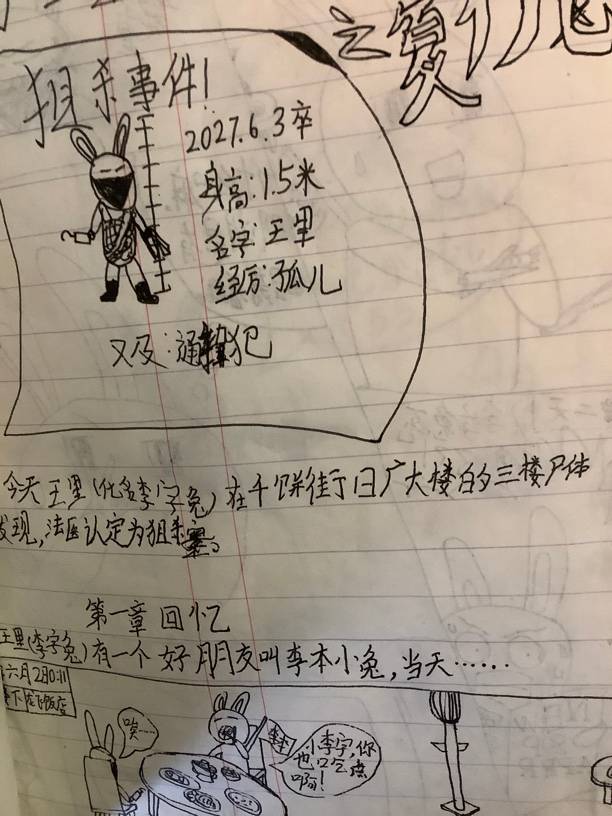 之复仇
狙杀事件!
2027.6.3卒
身高:1.5米
名字:王里
经历:孤儿
又及:通缉犯
今天王里(化名李字兔)在千饼街旧广大楼的三楼尸体
发现,法医认定为狙杀案。
第一章 回忆
王里(李字兔)有一个好朋友叫李本小兔,当天……
六月2日0:11
唉…
小李字,你
也口乞点
啊!